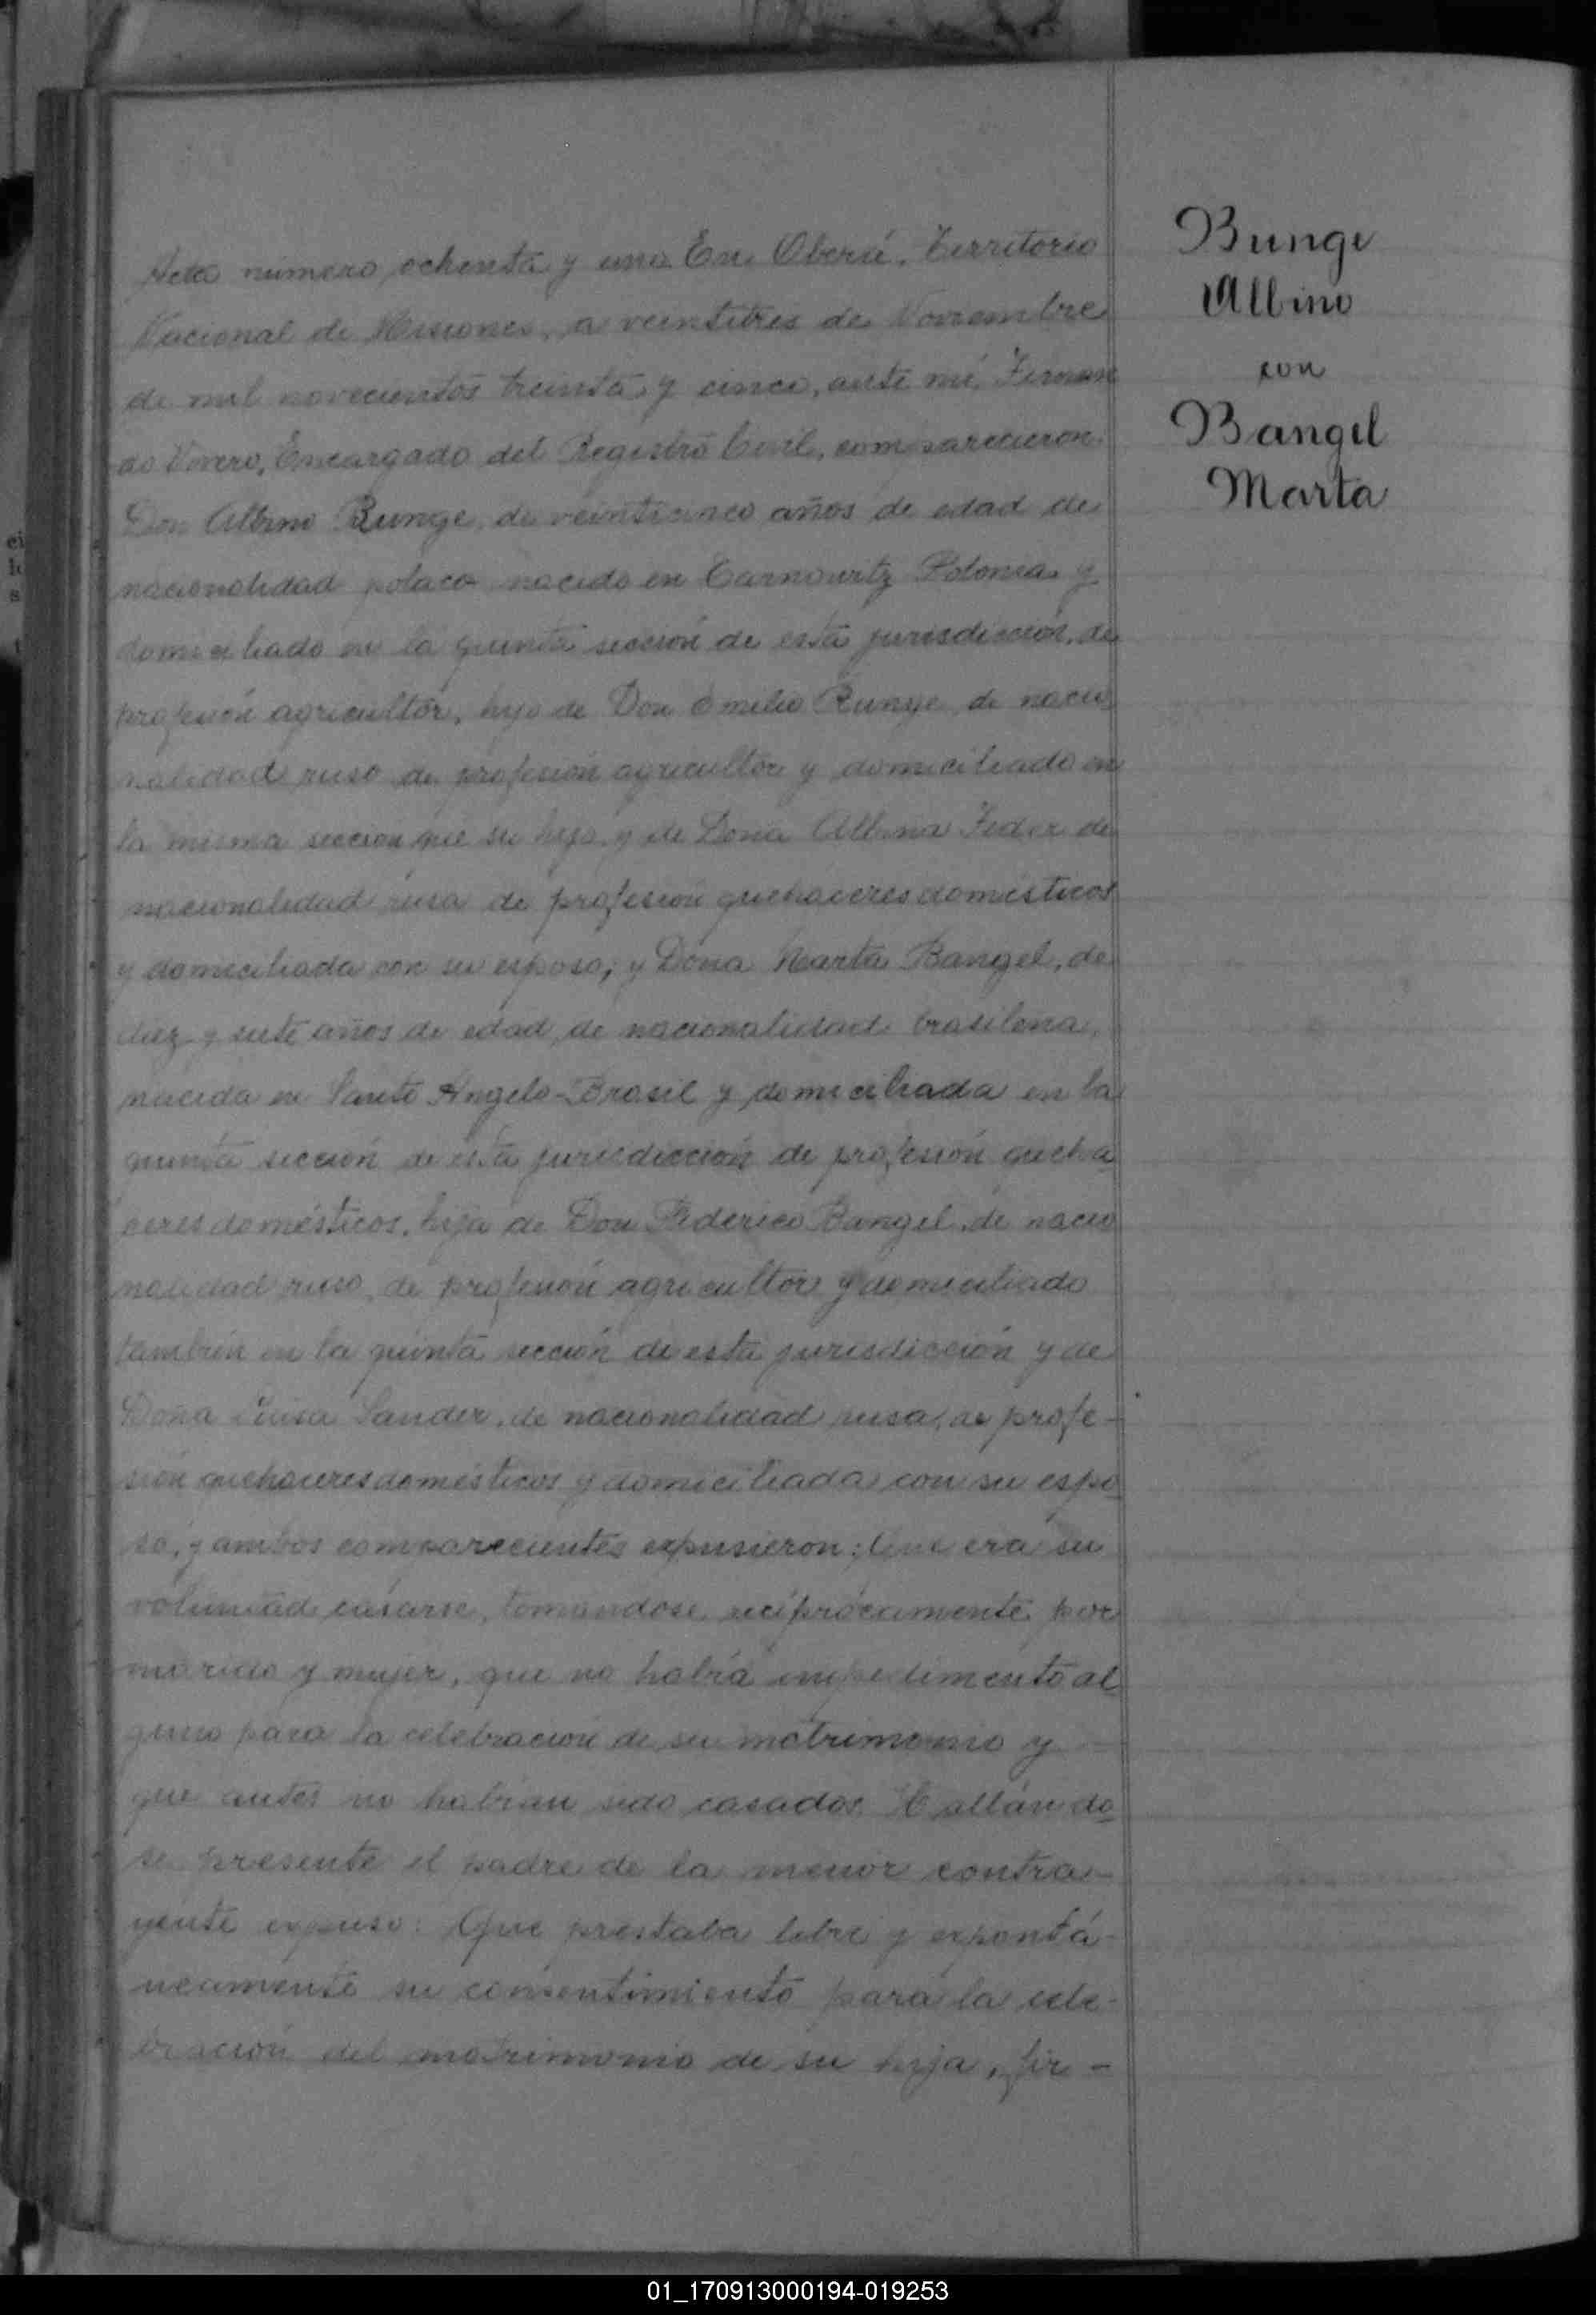 Acta número ochenta y una En Oberá, Territorio
Nacional de Misiones, a veintitres de Noviembre
de mil novecientos treinta y cinco, ante mí, Fernan
do Vivero, Encargado del Registro Civil, comparecieron
Don Albino Bunge, de veinticinco años de edad de
nacionalidad polaca nacido en Carnowitz Polonia y
domiciliado en la quinta sección de esta jurisdicción, de
profesión agricultor, hijo de Don Emilio Bunge, de nacio
nalidad ruso de profesión agricultor y domiciliado en
la misma sección que su hijo y de Doña Albina Feder de
nacionalidad rusa de profesión quehaceres domésticos
y domiciliada con su esposo; y Doña Marta Bangel, de
diez y siete años de edad, de nacionalidad brasileña,
nacida en Santo Angelo-Brasil y domiciliada en la
quinta sección de esta jurisdicción de profesión queha
ceres domésticos, hija de Don Federico Bangel, de nacio
nalidad ruso, de profesión agricultor y domiciliado
también en la quinta sección de esta jurisdicción y de
Doña Luisa Sander, de nacionalidad rusa, de profe-
sión quehaceres domésticos y domiciliada con su espo
so, y ambos comparecientes expusieron: Que era su
voluntad casarse, tomándose recíprocamente por
marido y mujer, que no había impedimento al
guno para la celebración de su matrimonio y
que antes no habían sido casados. Hallándo
se presente el padre de la menor contra-
yente expuso: Que prestaba libre y expontá-
neamente su consentimiento para la cele-
bración del matrimonio de su hija, fir-
Bunge
Albino
con
Bangel
Marta
01_170913000194-019253